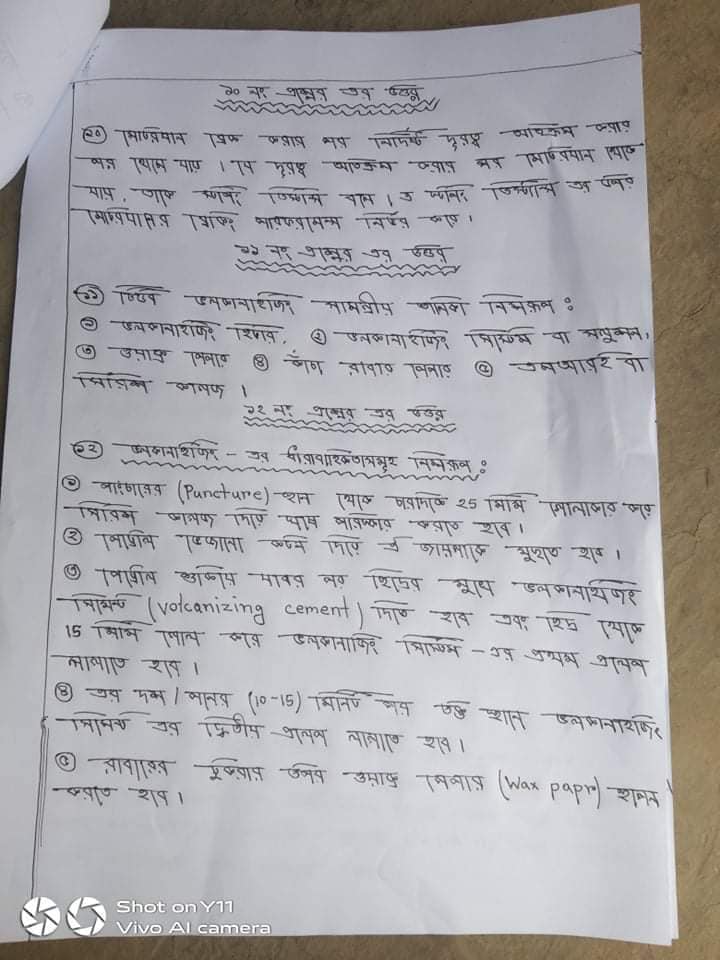 ১০ নং প্রশ্নের এর উত্তর
১০ মোটরযান ব্রেক করার পর নির্দিষ্ট দূরত্ব অতিক্রম করার
পর থেমে যায়। যে দূরত্ব অতিক্রম করার পর মোটরযান থেমে
যায়, তাকে স্টপিং ডিস্ট্যান্স বলে। এ স্টপিং ডিস্ট্যান্স এর উপর
মোটরযানের ব্রেকিং পারফরমেন্স নির্ভর করে।
১১ নং প্রশ্নের এর উত্তর
১১ টিউব ভলকানাইজিং সামগ্রীর তালিকা নিম্নরূপ :
১ ভলকানাইজিং হিটার, ২ ভলকানাইজিং সিমেন্ট বা সলুশন,
৩ ওয়াক্স পেপার ৪ কাঁচা রাবার পেপার ৫ এমআরই বা
সিরিজ কাগজ।
১২ নং প্রশ্নের এর উত্তর
১২ ভলকানাইজিং - এর ধারাবাহিকতাসমূহ নিম্নরূপ :
১ পাংচারের (Puncture) স্থান থেকে চারদিকে 25 মিমি গোলাকার করে
সিরিজ কাগজ দিয়ে ঘষে পরিষ্কার করতে হবে।
২ পেট্রোল ভেজানো কটন দিয়ে ঐ জায়গাকে মুছতে হবে।
৩ পেট্রোল শুকিয়ে যাবার পর ছিদ্রের মুখে ভলকানাইজিং
সিমেন্ট (volcanizing cement) দিতে হবে এবং ছিদ্র থেকে
15 মিমি গোল করে ভলকানাজিং সিমেন্ট - এর প্রথম প্রলেপ
লাগাতে হবে।
৪ এর দশ / পনের (10-15) মিনিট পর উক্ত স্থানে ভলকানাইজিং
সিমেন্ট এর দ্বিতীয় প্রলেপ লাগাতে হবে।
৫ রাবারের টুকরার উপর ওয়াক্স পেপার (Wax papr) স্থাপন
করতে হবে।
Shot on Y11
Vivo AI camera